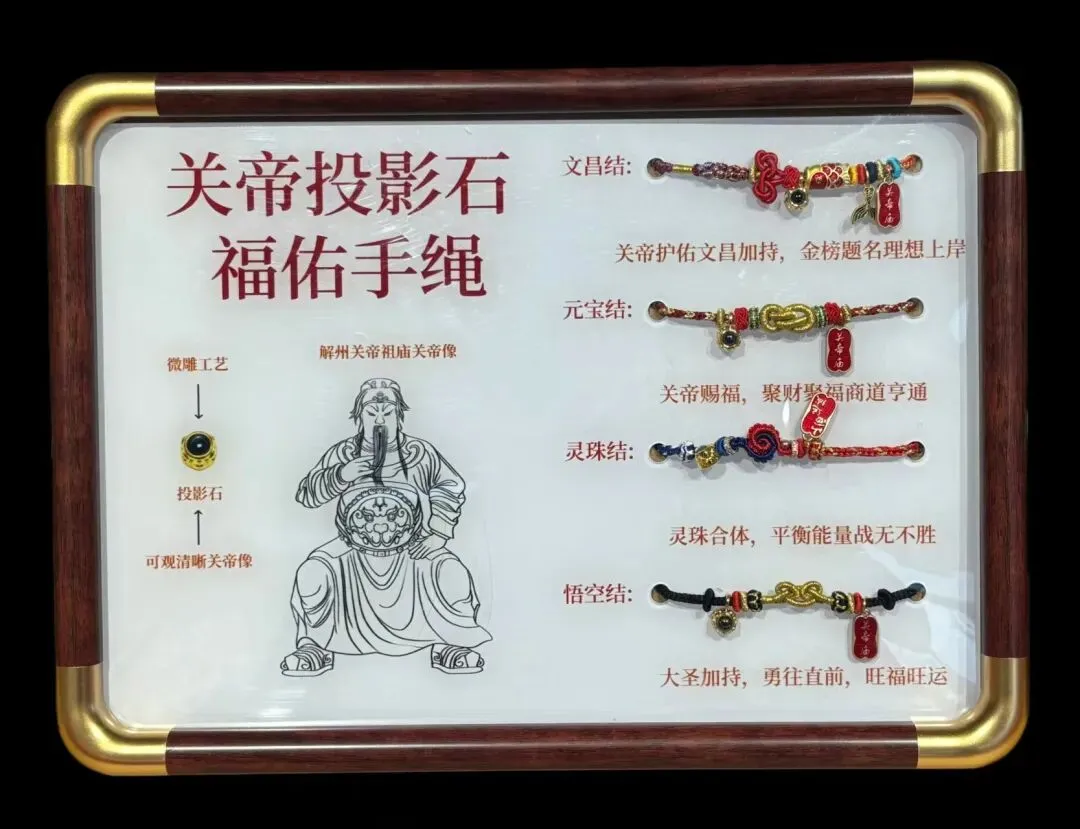 关帝投影石
福佑手绳
微雕工艺
投影石
可观清晰关帝像
解州关帝祖庙关帝像
文昌结:
关帝庙
关帝护佑文昌加持，金榜题名理想上岸
元宝结:
关帝庙
关帝赐福，聚财聚福商道亨通
灵珠结:
灵珠合体，平衡能量战无不胜
悟空结:
关帝庙
大圣加持，勇往直前，旺福旺运